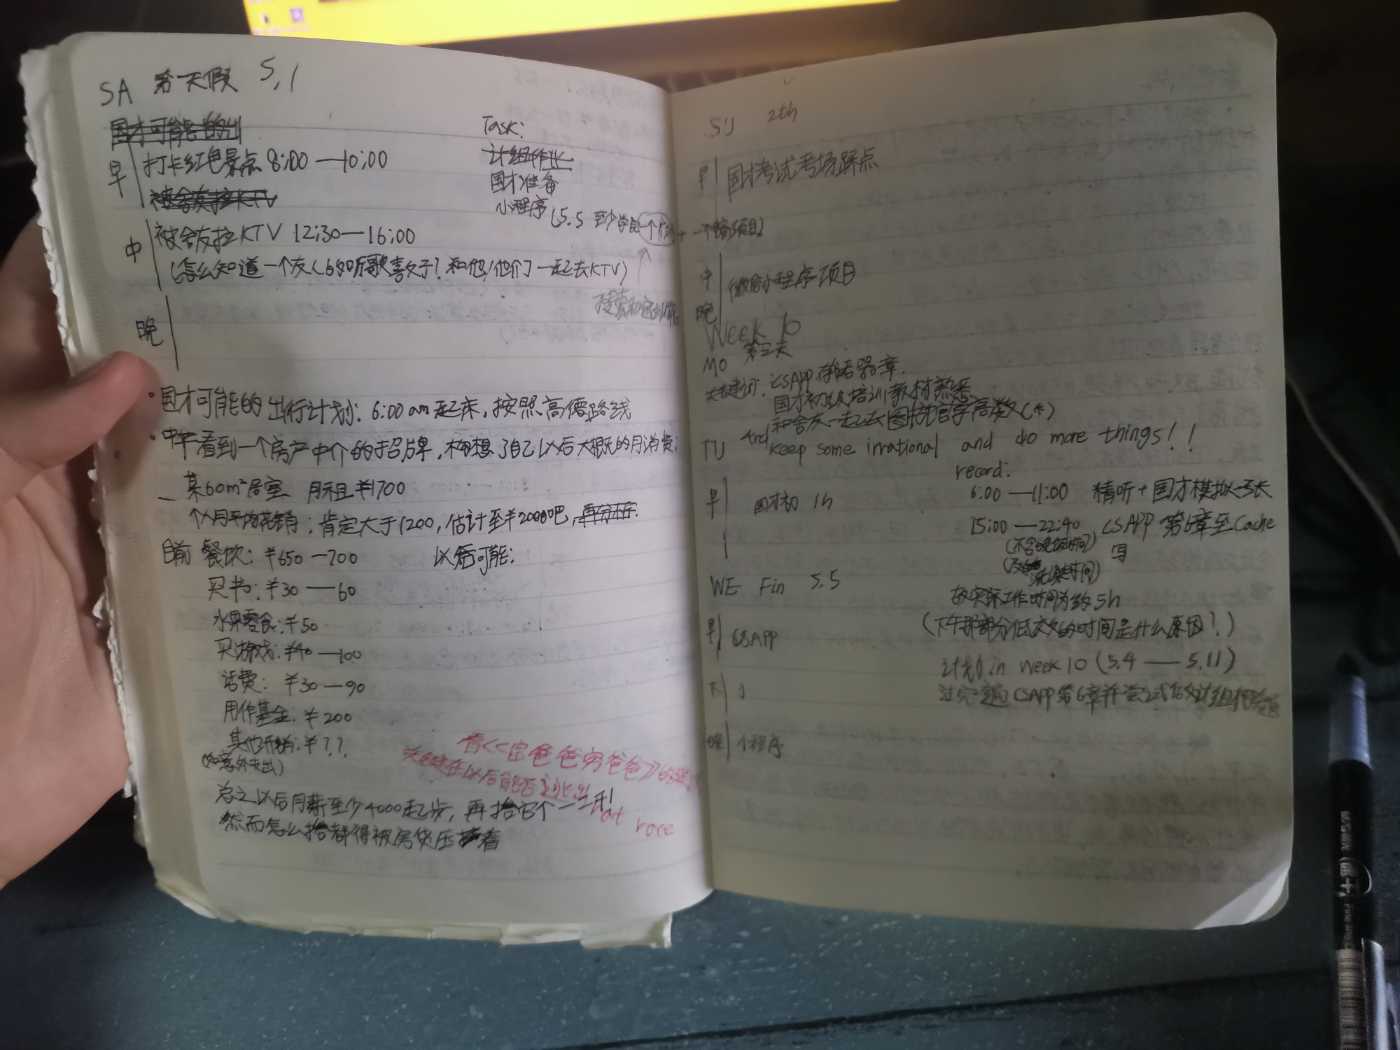 SA 第一天假 5,1
国才可能的出
早 打卡红色景点 8:00 —10:00
被舍友拉KTV
中 被舍友拉KTV 12:30—16:00
(怎么知道一个友 听歌喜欢于? 和他/他们一起去KTV)
晚
Task:
计组作业
国才准备
小程序 (5.5 至少学完一个
· 国才可能的出行计划: 6:00 am起床, 按照高德路线
· 中午看到一个房产中介的招牌, 构想了自己以后大概的月消费:
某60m²居室 月租¥1700
个人月平均花销: 肯定大于1200, 估计至¥2000吧,
目前 餐饮: ¥650—700 以后可能:
买书: ¥30—60
水果零食: ¥50
买游戏: ¥40—100
话费: ¥30—90
用作基金: ¥200
其他开销: ¥??
(如意外支出)
看<<富爸爸穷爸爸>>
关键在以后能否跳出
rat race
总之以后月薪至少4000起步, 再抬它个一二千!
然而怎么抬都得被房贷压着
SU 2th
早 国才考试考场踩点
中 微信小程序项目
晚
Week 10
MO 第三天
关键词: CSAPP 存储器章.
国才初级培训教材熟悉
和舍友一起去图书馆学高数(*)
And keep some irrational and do more things!!
TU
record:
早 国才初 1h
6:00 —11:00 精听+国才模拟
15:00 —22:40 CSAPP 第6章至Cache
(不含晚饭时间) 写
(及 洗澡时间)
故实际工作时间为约5h
(下午那部分低效的时间是什么原因?)
WE Fin 5.5
早 CSAPP
计划 in week 10 (5.4 — 5.11)
过完一遍 CSAPP 第6章并尝试
下
晚 小程序